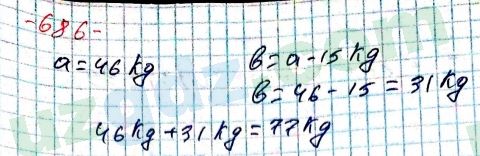 -686-
a = 46 kg
b = a - 15 kg
b = 46 - 15 = 31 kg
46 kg + 31 kg = 77 kg